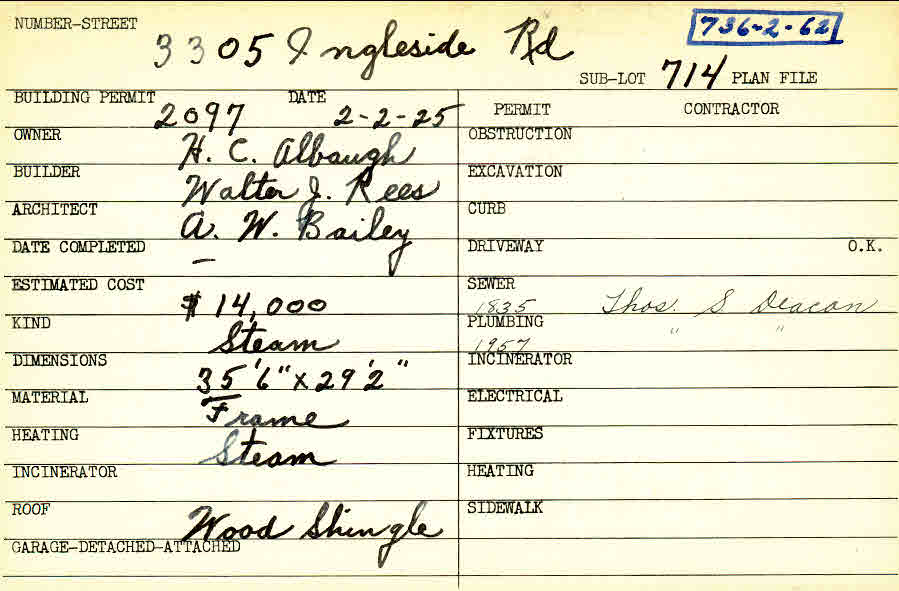 NUMBER-STREET 3305 Ingleside Rd 736-2-62
SUB-LOT 714 PLAN FILE
BUILDING PERMIT 2097 DATE 2-2-25 PERMIT CONTRACTOR
OWNER H. C. Albaugh OBSTRUCTION
BUILDER Walter J. Rees EXCAVATION
ARCHITECT A. W. Bailey CURB
DATE COMPLETED — DRIVEWAY O.K.
ESTIMATED COST $14,000 SEWER 1835 Thos. S. Deacon
KIND Steam PLUMBING 1957 " "
DIMENSIONS 35'6" x 29'2" INCINERATOR
MATERIAL Frame ELECTRICAL
HEATING Steam FIXTURES
INCINERATOR HEATING
ROOF Wood Shingle SIDEWALK
GARAGE-DETACHED-ATTACHED